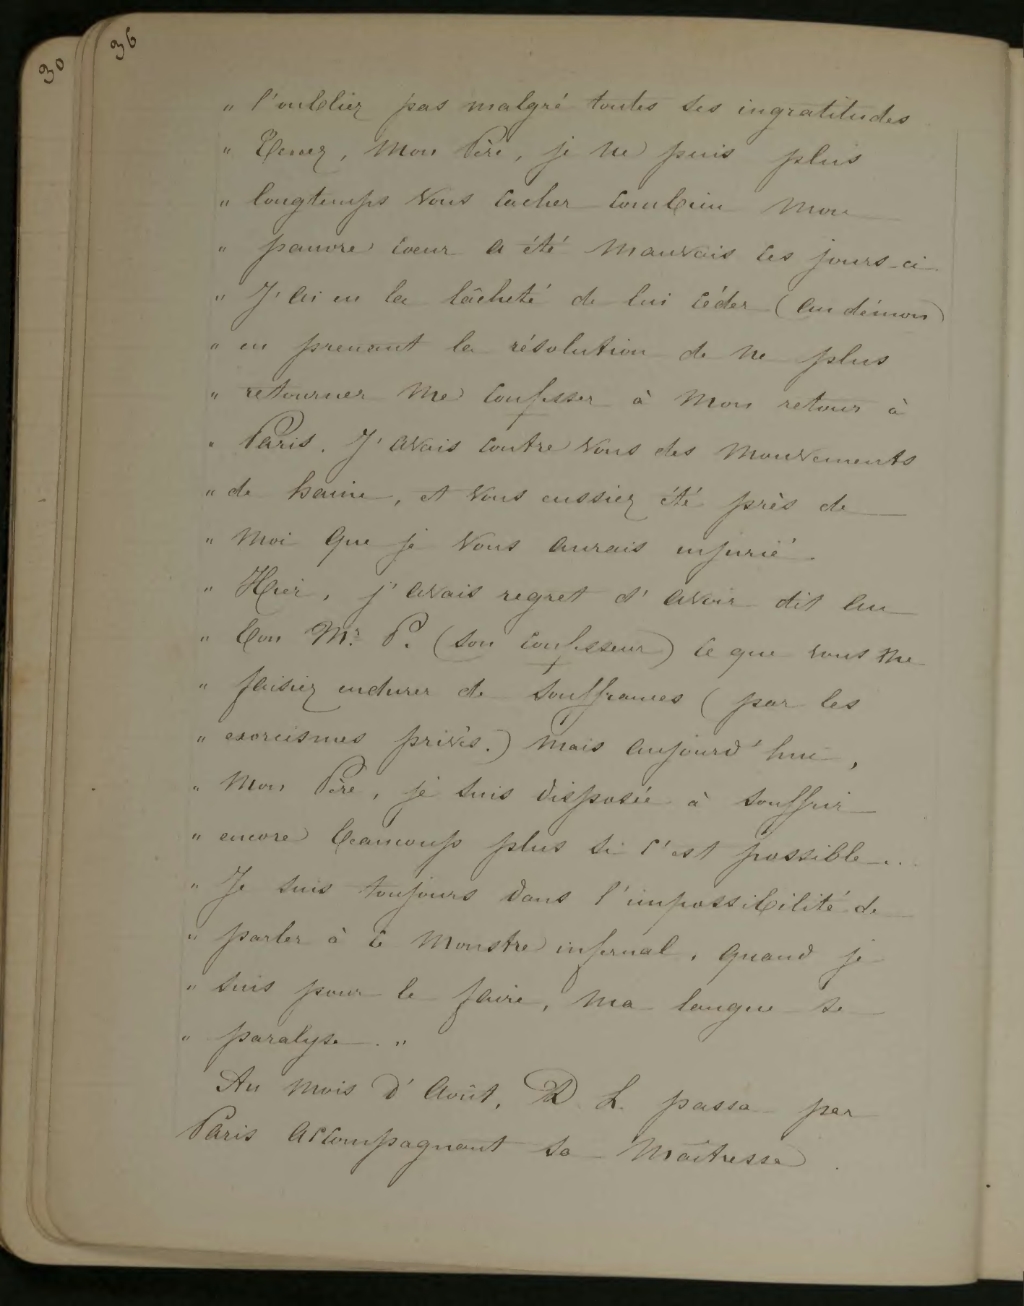 30
36
" l'oubliez pas malgré toutes ses ingratitudes
" Tenez, mon Père, je ne puis plus
" longtemps vous cacher combien mon
" pauvre coeur a été mauvais ces jours-ci.
" J'ai eu la lâcheté de lui céder (au démon)
" en prenant la résolution de ne plus
" retourner me confesser à mon retour à
" Paris. J'avais contre vous des mouvements
" de haine, et vous eussiez été près de
" moi que je vous aurais injurié.
" Hier, j'avais regret d'avoir dit au
" bon Mr P. (son confesseur) ce que vous me
" faisiez endurer de souffrances (par les
" exorcismes privés.) mais aujourd'hui,
" mon Père, je suis disposée à souffrir
" encore beaucoup plus si c'est possible...
" Je suis toujours dans l'impossibilité de
" parler à ce monstre infernal, quand je
" suis pour le faire, ma langue se
" paralyse. "
Au mois d'Août, D. L. passa par
Paris accompagnant sa maîtresse.